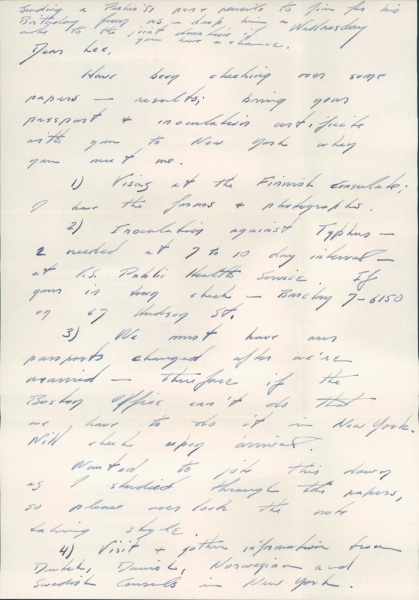 Sending a Parker 51 pen & pencil to Jim for his
Birthday from us - drop him a
note to the joint donation if Wednesday
you have a chance.
Dear Lee,
Have been checking over some
papers — results; bring your
passport & inoculation certificate
with you to New York when
you meet me.
1) Visas at the Finnish Consulate;
I have the forms & photographs.
2) Inoculation against Typhus —
2 needed at 7 to 10 day interval —
at U.S. Public Health Service. If
yours is done check — Barclay 7-6150
or 67 Hudson St.
3) We must have our
passports changed after we're
married — therefore if the
Boston Office can't do that
we have to do it in New York.
Will check upon arrival.
Wanted to jote this down
as I studied through the papers,
so please over look the note
taking style.
4) Visit & gather information from
Dutch, Danish, Norwegian and
Swedish Consuls in New York.